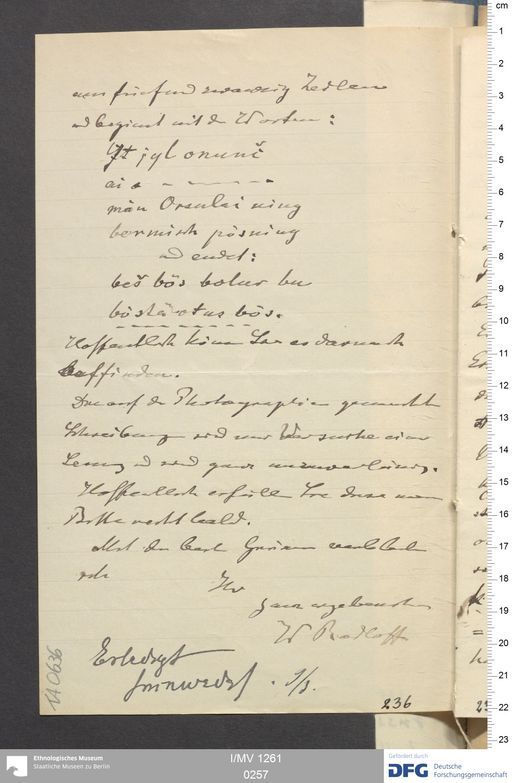 nur fünfundzwanzig Zeilen
und beginnt mit den Worten:
Jt jyl onunč
ai a – – – –
män Orsulai ning
bermish pösning
und endet:
beš bös bolur bu
böslä otus bös.
Hoffentlich können Sie es darnach
auffinden.
Die auf der Photographie gemachten
Schreibung sind nur Versuche einer
Lesung und sind ganz unzuverlässig.
Hoffentlich erfüllen Sie diese meine
Bitte recht bald.
Mit den besten Grüssen verbleibe
ich
Ihr
ganz ergebenster
W Radloff
Erledigt
Grünwedel. 9/3.
236
IA 0636
cm
1
2
3
4
5
6
7
8
9
10
11
12
13
14
15
16
17
18
19
20
21
22
23
Ethnologisches Museum
Staatliche Museen zu Berlin
I/MV 1261
0257
Gefördert durch
DFG Deutsche
Forschungsgemeinschaft